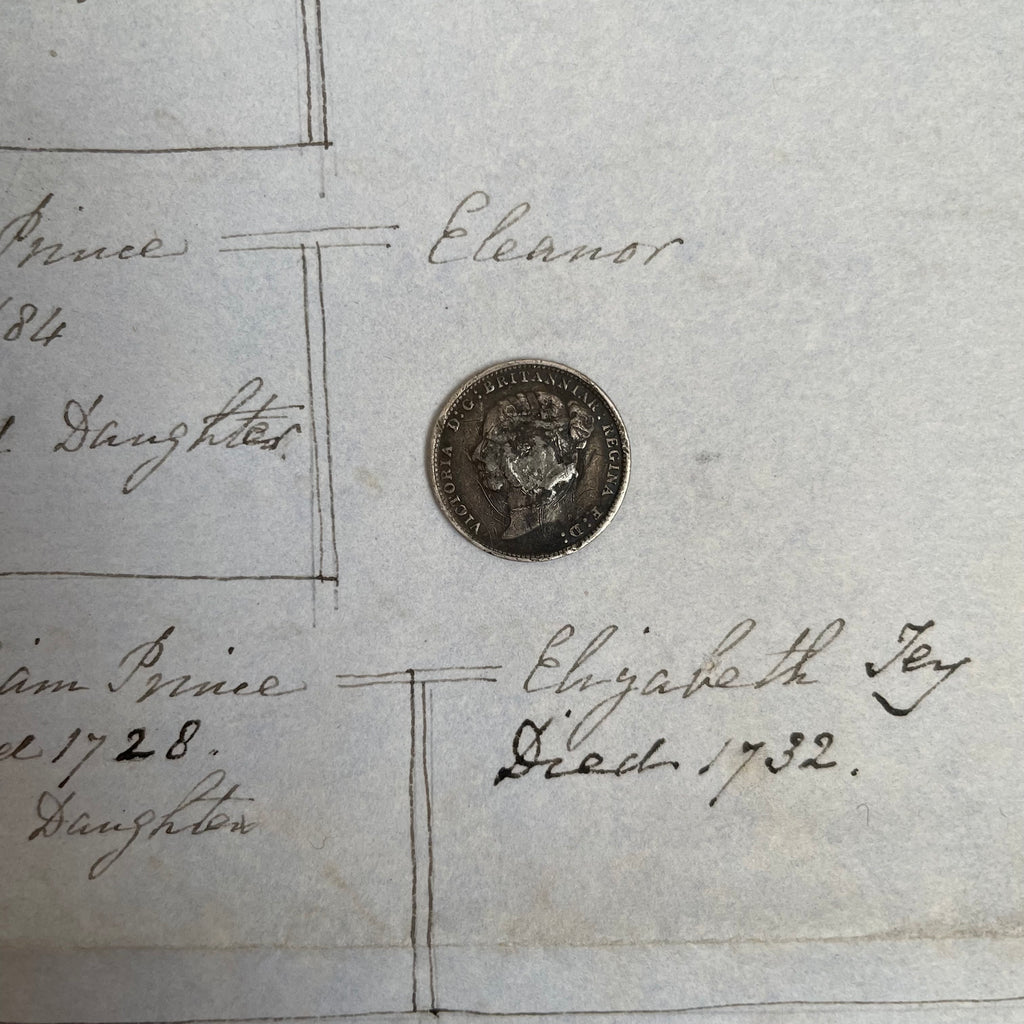 Prince Eleanor
84
Daughter.
VICTORIA D:G: BRITANNIAR: REGINA F:D:
iam Prince Elizabeth Tey
d 1728. Died 1732.
Daughter